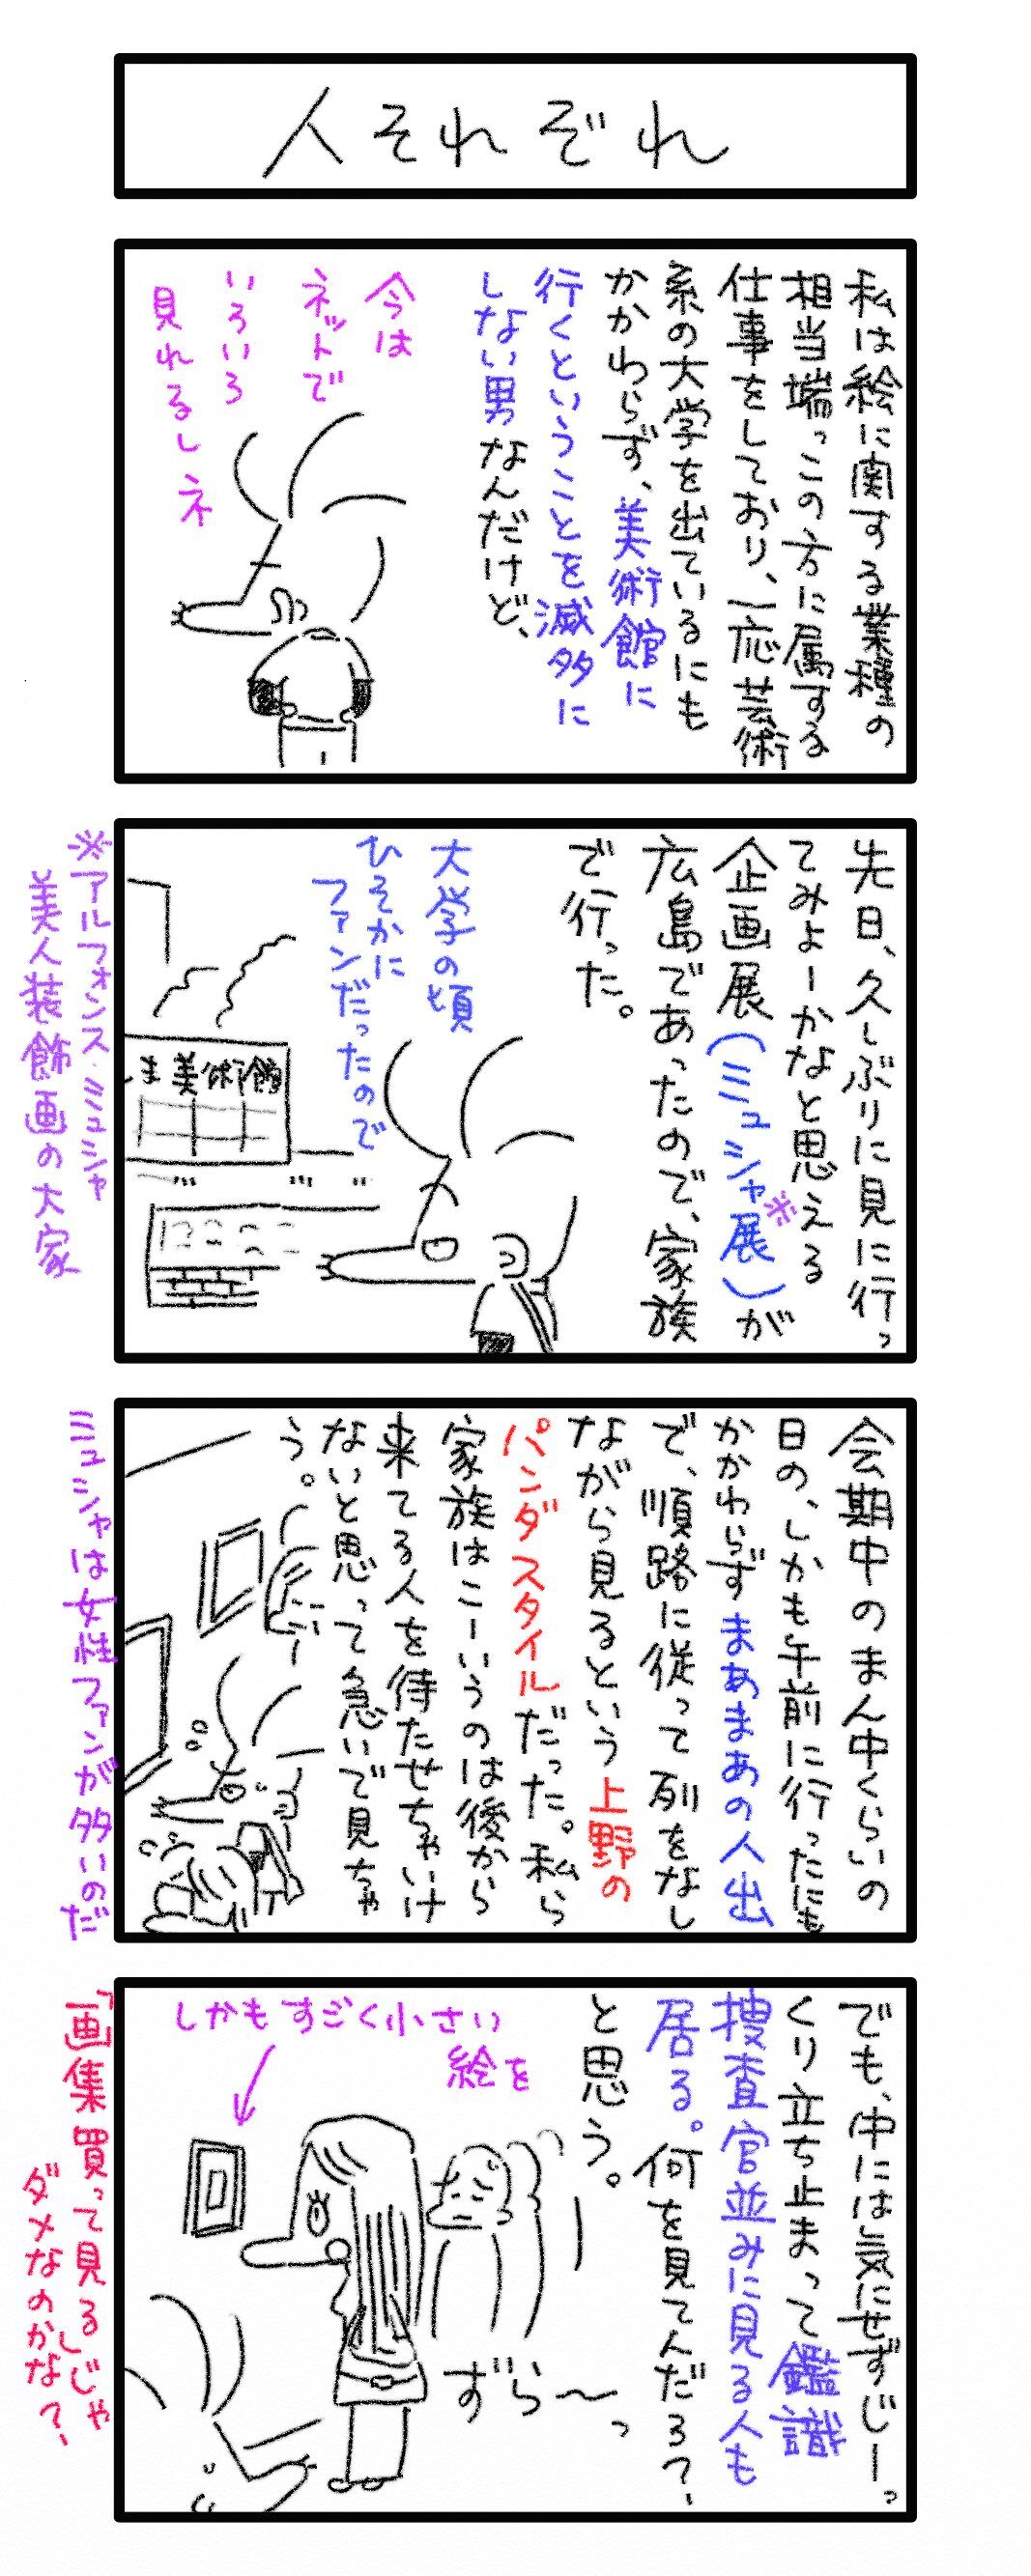 人それぞれ
私は絵に関する業種の
相当端っこの方に属する
仕事をしており、一応芸術
系の大学を出ているにも
かかわらず、美術館に
行くということを滅多に
しない男なんだけど、
今は
ネットで
いろいろ
見れるしネ
先日、久しぶりに見に行っ
てみよーかなと思える
企画展(ミュシャ展)※が
広島であったので、家族
で行った。
大学の頃
ひそかに
ファンだったので
ま美術館
※アルフォンス・ミュシャ
美人装飾画の大家
会期中のまん中くらいの
日の、しかも午前に行ったにも
かかわらずまあまあの人出
で、順路に従って列をなし
ながら見るという上野の
パンダスタイルだった。私ら
家族はこーいうのは後から
来てる人を待たせちゃいけ
ないと思って急いで見ちゃ
う。
ミュシャは女性ファンが多いのだ
でも、中には気にせずじーっ
くり立ち止まって鑑識
捜査官並みに見る人も
居る。何を見てんだろ?、
と思う。
しかもすごく小さい
絵を
ずら〜っ
「画集買って見る」じゃ
ダメなのかな?、